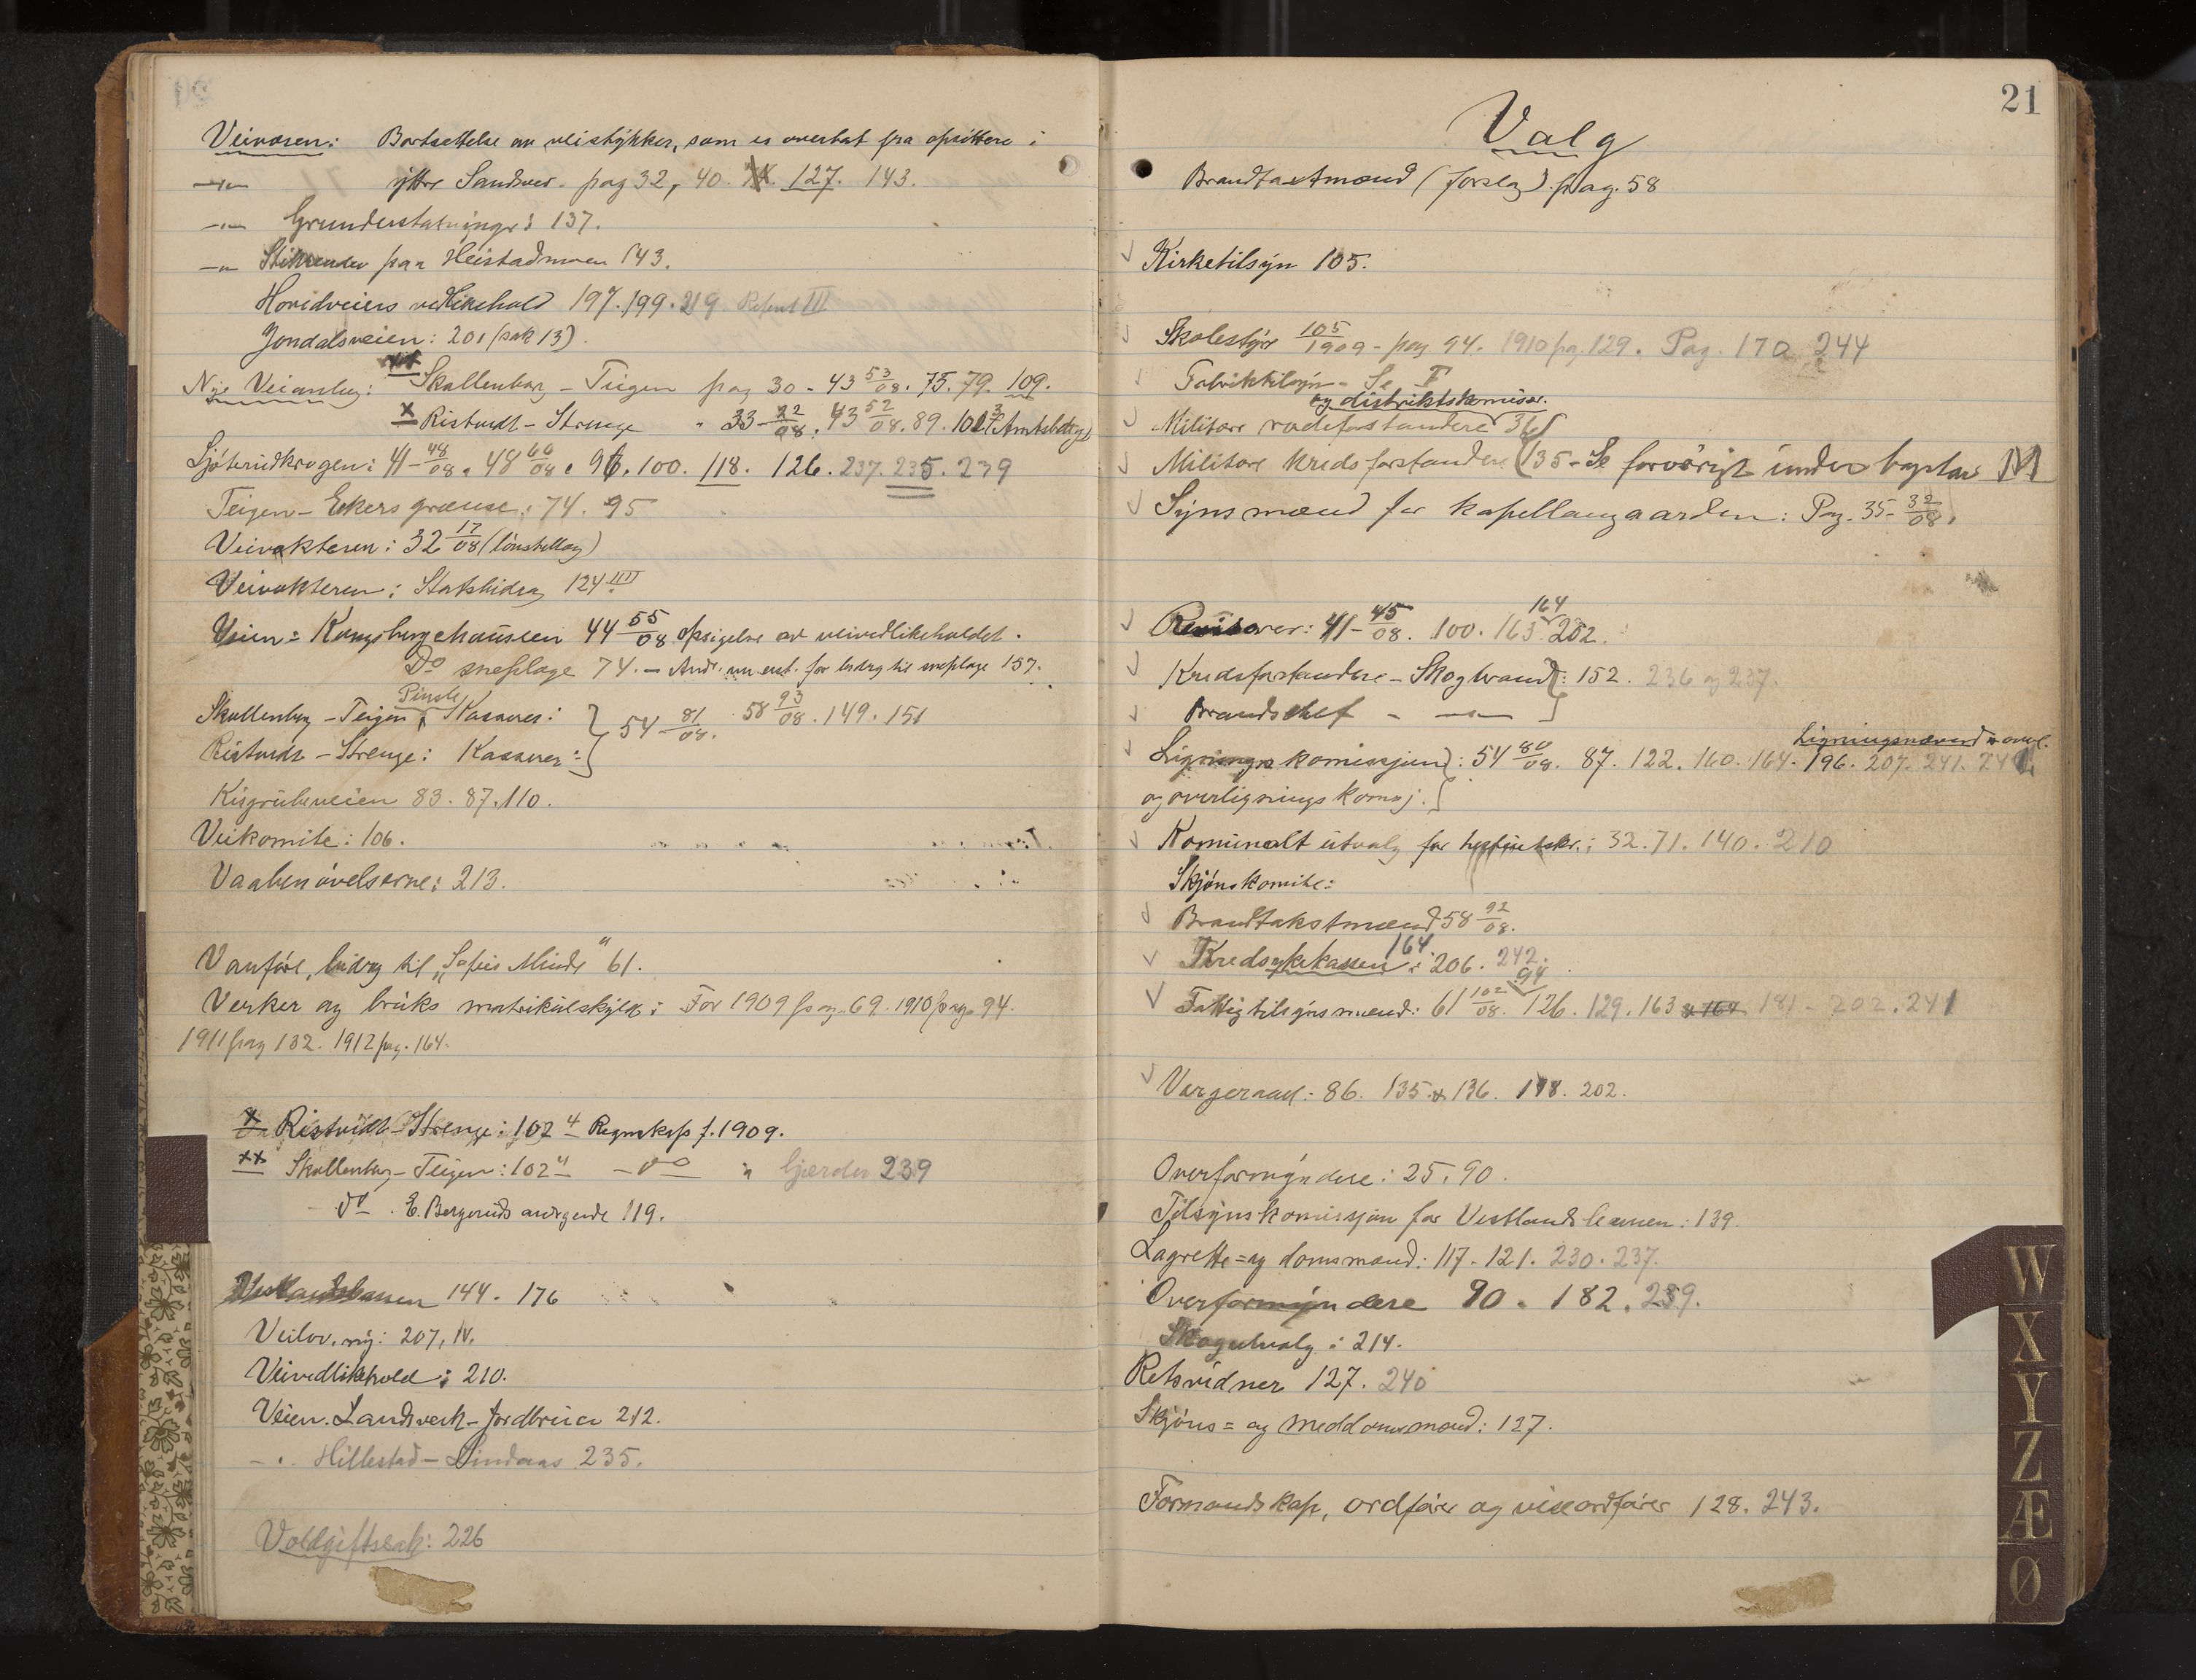 Veivæsen: Bortsettelse av veistykker, som er overtat fra opsittere i
-"- ytre Sandsver. pag 32, 40. 127. 143.
-"- Grunderstatninger: 137.
-"- paa Heistadmoen 143.
Hovidveiers vedlikehold 197. 199. 219. III
Jondalsveien: 201 (sak 13).
Nye Veianlæg: xx Skollenborg - Teigen pag 30 - 43 53/08. 75. 79. 109.
x Ristvedt - Strenge " 33 - 22/08. 43 52/08. 89. 102 3
Sjöterudkrogen: 41 - 48/08. 48 60/08. 96. 100. 118. 126. 237. 235. 239
Teigen - Ekers grænse: 74. 95
Veivokteren: 32 17/08 (lönstillæg)
Veivokteren: Statsbidrag 124 III
Veien = Kongsbergchausseen 44 55/08 opsigelse av veivedlikeholdet.
Do sneplage 74. - for bidrag til sneplage 157.
Skollenborg - Teigen Kasserer: } 54 81/08. 58 93/08. 149. 151
Ristvedt - Strenge: Kasserer: }
Kisgrubeveien 83. 87. 110.
Veikomite: 106.
Vaabenövelserne: 213.
Vanföre, bidrag til "Sofies Minde" 61.
Verker og bruks matrikulskyld: For 1909 pag. 69. 1910 pag. 94.
1911 pag 132. 1912 pag. 164.
x Ristvedt - Strenge: 102 4 Regnskap f. 1909.
xx Skollenborg - Teigen: 102 4 - do - " Gjerder 239
do. E. Bergeruds andragende 119.
Vestlandsbanen 144. 176
Veilov, ny: 207, IV.
Veivedlikehold: 210.
Veien Landsverk - Jordbru 212.
- " Hillestad - Lindaas 235.
Voldgiftssak: 226
21
Valg
Brandtakstmænd (forslag) pag. 58
Kirketilsyn 105.
Skolestyre 105/1909 - pag. 94. 1910 pg. 129. Pag. 170 244
Fabriktilsyn - Se F
og distriktskomisær.
Militære rodeforstandere 36
Militære kredsforstandere (35 - Se forövrigt under bogstav M
Synsmænd for kapellangaarden: Pag. 35 - 32/08.
164
Revisorer: 41 - 45/08. 100. 163. 202.
Kredsforstandere - Skogbrand}: 152. 236 og 237.
Brandchef - -"- }
Ligningsnævnd
Ligningskomissjon}: 54 80/08. 87. 122. 160. 164. 196. 207. 241.
og overligningskomsj. }
Komunalt utvalg for hesteutskr.: 32. 71. 140. 210
Skjönskomite:
Brandtakstmænd 58 92/08.
164
Kredsykekassen: 206. 242.
94
Fattigtilsynsmænd: 61 102/08. 126. 129. 163 & 164 181 - 202. 241
Vergeraad: 86. 135 & 136. 178. 202.
Overformyndere: 25. 90.
Tilsynskomissjon for Vestlandsbanen: 139.
Lagrette= og domsmænd: 117. 121. 230. 237.
Overformyndere 90. 182. 239.
Skogutvalg: 214.
Retsvidner 127. 240
Skjöns= og meddomsmænd: 127.
Formandskap, ordförer og viseordförer 128. 243.
W
X
Y
Z
Æ
Ø